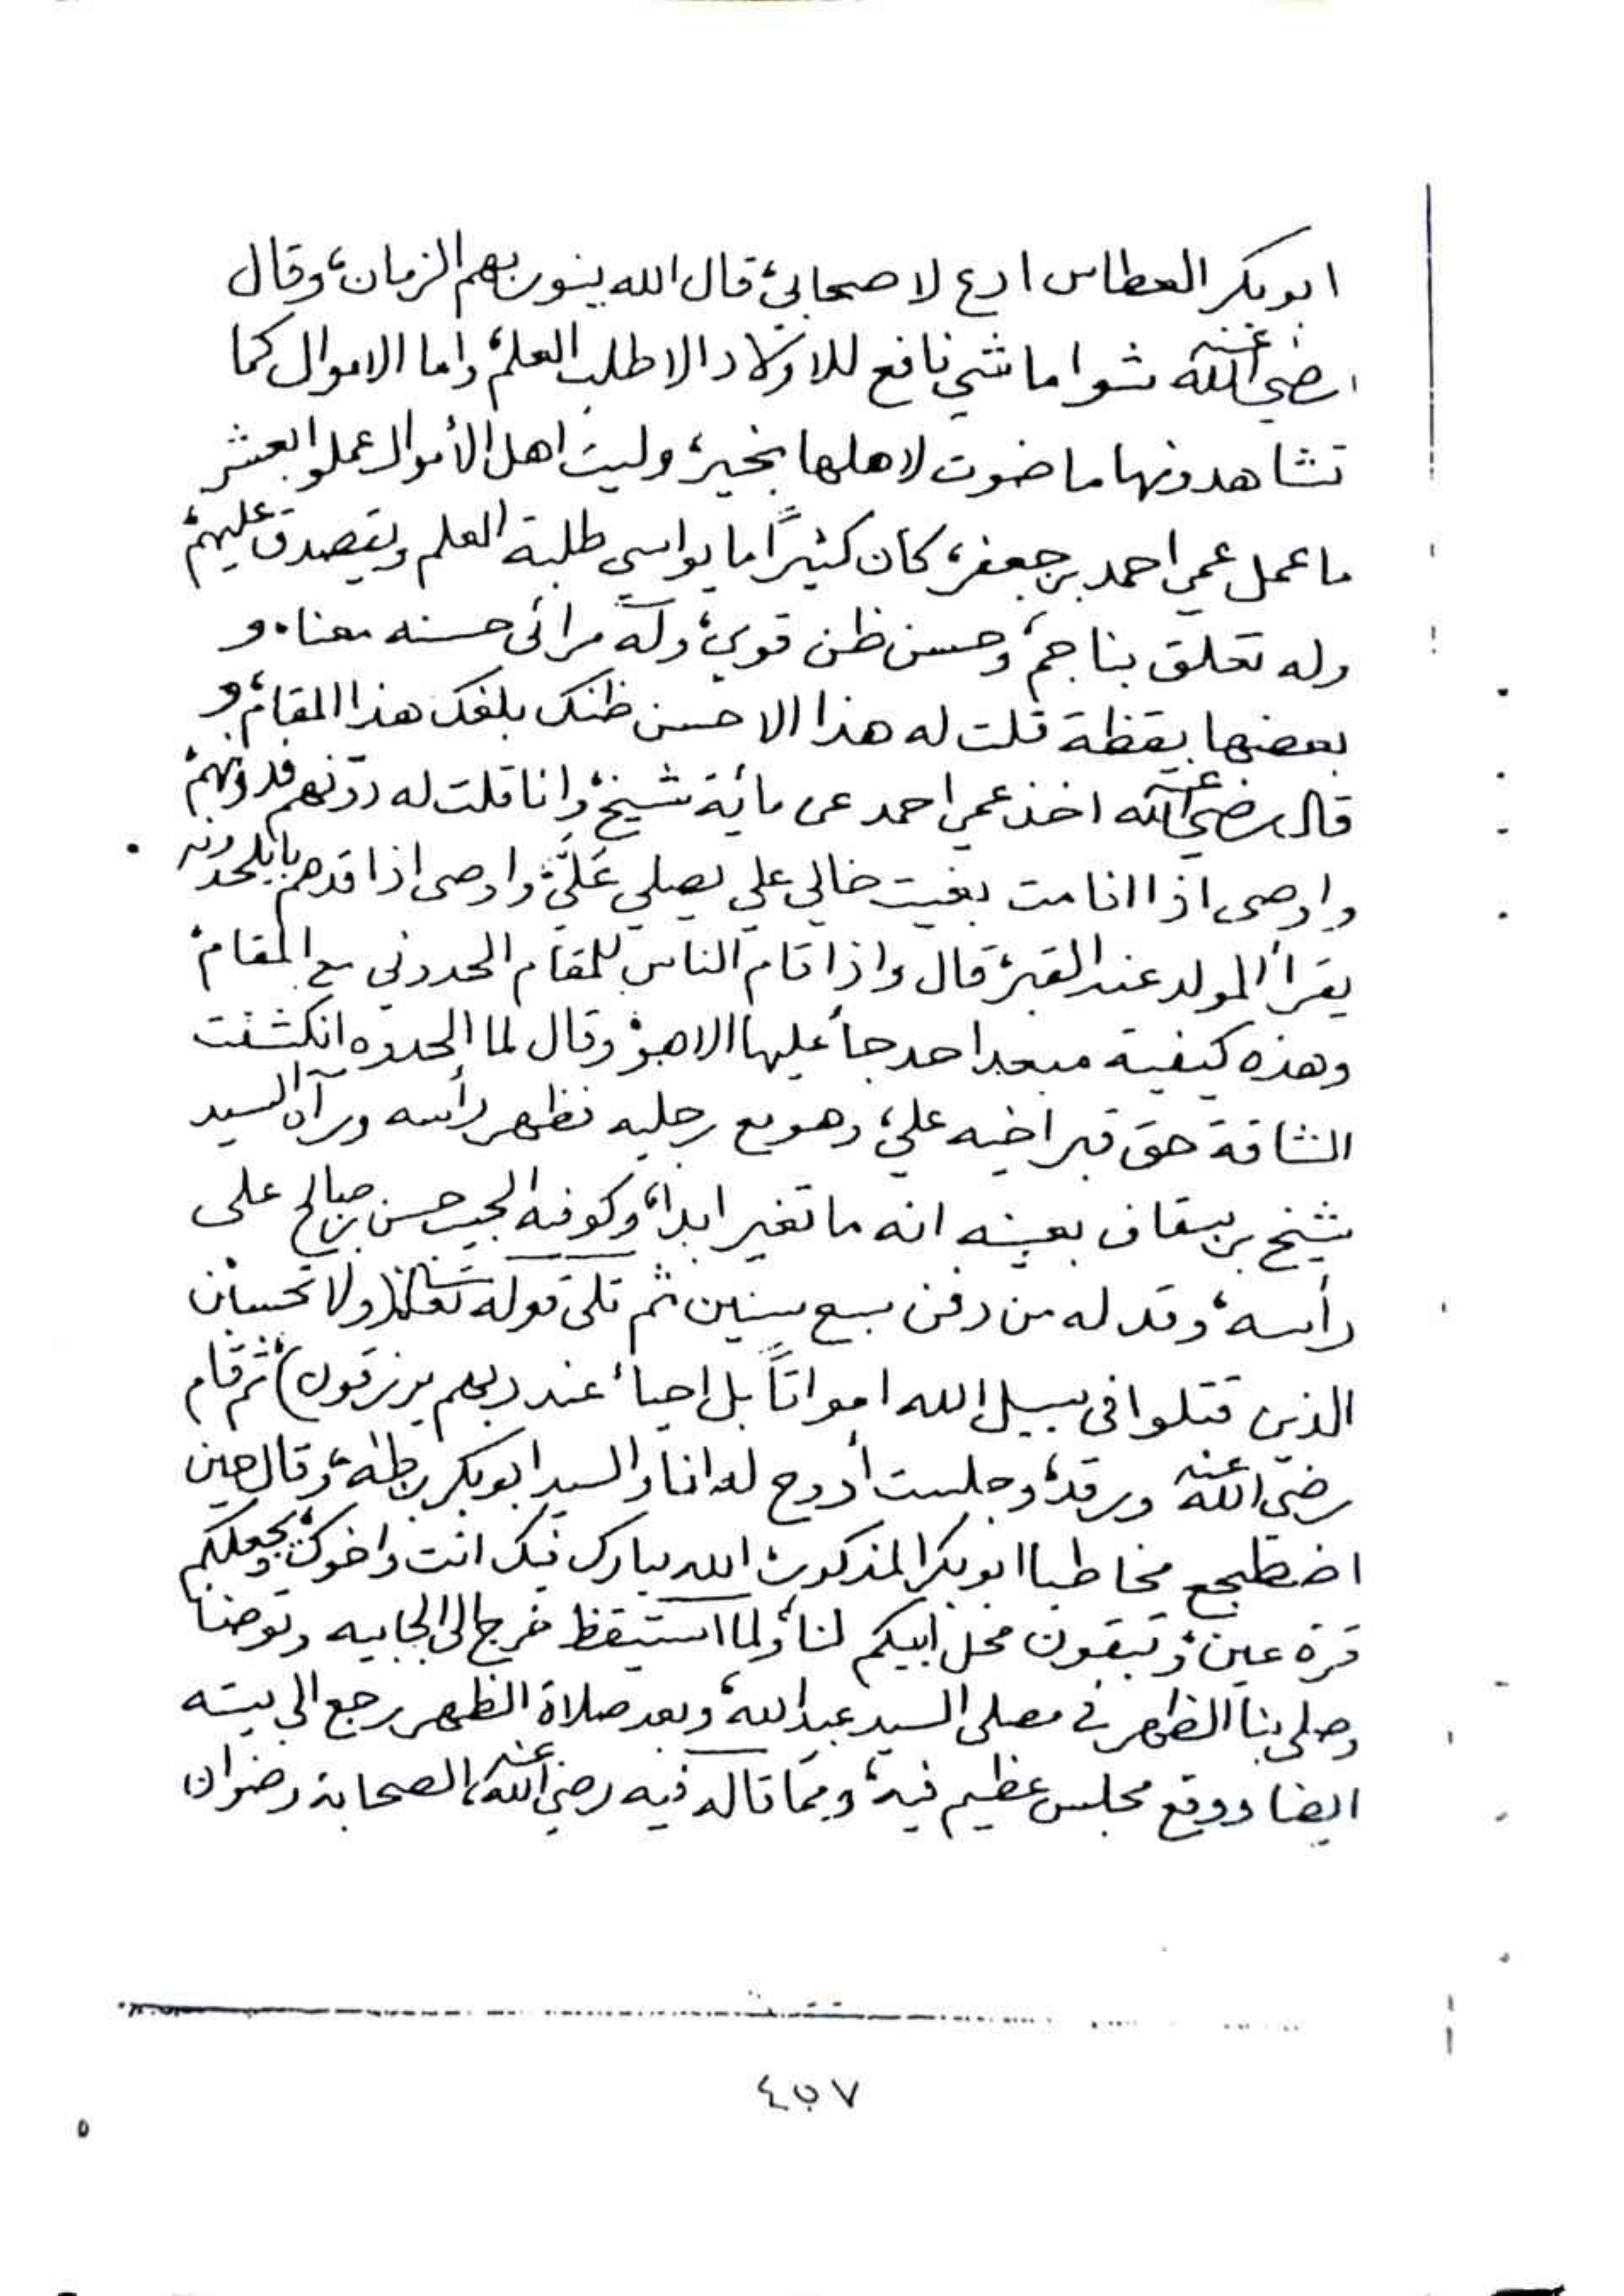 ابوبكر العطاس ادع لاصحابي، قال الله ينور بهم الزمان، وقال
رضي الله عنه شوا ماشي نافع للاولاد الا طلب العلم، واما الاموال كما
تشاهدونها ماضوت لاهلها بخير، وليت اهل الأموال عملوا بعشر
ما عمل عمي احمد بن جعفر، كان كثيرًا ما يواسي طلبة العلم ويتصدق عليهم،
وله تعلق بنا جم، وحسن ظن قوي، وله مرائى حسنه معنا، و
بعضها يقظة قلت له هذا الا حسن ظنك بلغك هذا المقام، و
قال رضي الله عنه اخذ عمي احمد عن مائة شيخ، وانا قلت له دوّنهم فدونهم،
واوصى اذا انا مت بغيت خالي علي يصلي عَليَّ، واوصى اذا قدهم بايلحدونه
يقرأ المولد عند القبر، قال واذا قام الناس للمقام الحدوني مع المقام،
وهذه كيفية ماحد جاء عليها الا هو، وقال لما الحدوه انكشفت
الشاقة حق قبر اخيه علي، وهو مع رجليه فظهر رأسه ورآه السيد
شيخ بن سقاف بعينه انه ما تغير ابدا، وكوفية الحبيب حسن بن صالح على
رأسه، وقد له من دفن سبع سنين ثم تلى قوله تعالى (ولا تحسبن
الذين قتلوا في سبيل الله امواتًا بل احياء عند ربهم يرزقون) ثم قام
رضي الله عنه ورقد، وجلست أروح له انا والسيد ابوبكر بن طه، وقال حين
اضطجع مخاطبا ابوبكر المذكور، الله يبارك فيك انت واخوك، ويجعلكم
قرة عين، وتبقون محل ابيكم لنا، ولما استيقظ خرج الى الجابيه وتوضأ
وصلى بنا الظهر في مصلى السيد عبدالله، وبعد صلاة الظهر رجع الى بيته
ايضا ووقع مجلس عظيم فيه، ومما قاله فيه رضي الله عنه، الصحابة رضوان
٤٥٧